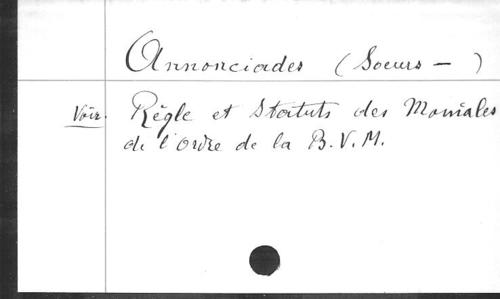 Annonciades (Soeurs — )
Voir. Règle et Statuts des Moniales
de l'Ordre de la B.V.M.